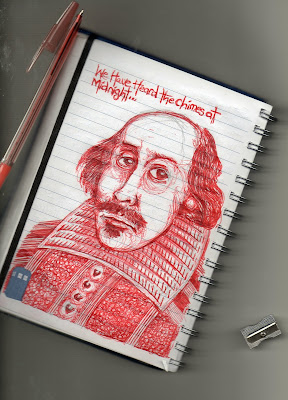 We Have Heard the Chimes at
Midnight...